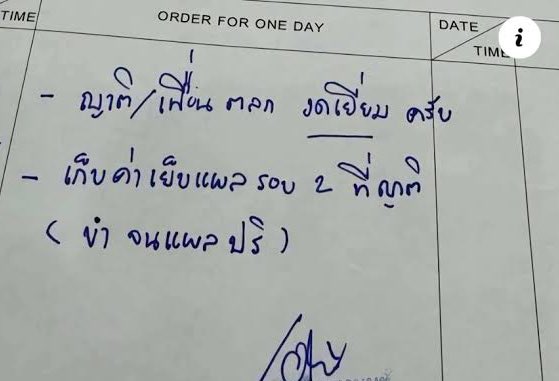 TIME ORDER FOR ONE DAY DATE TIME
- ญาติ/เพื่อน ตลก งดเยี่ยม ครับ
- เก็บค่าเย็บแผลรอบ 2 ที่ญาติ
( ขำ จนแผลปริ )